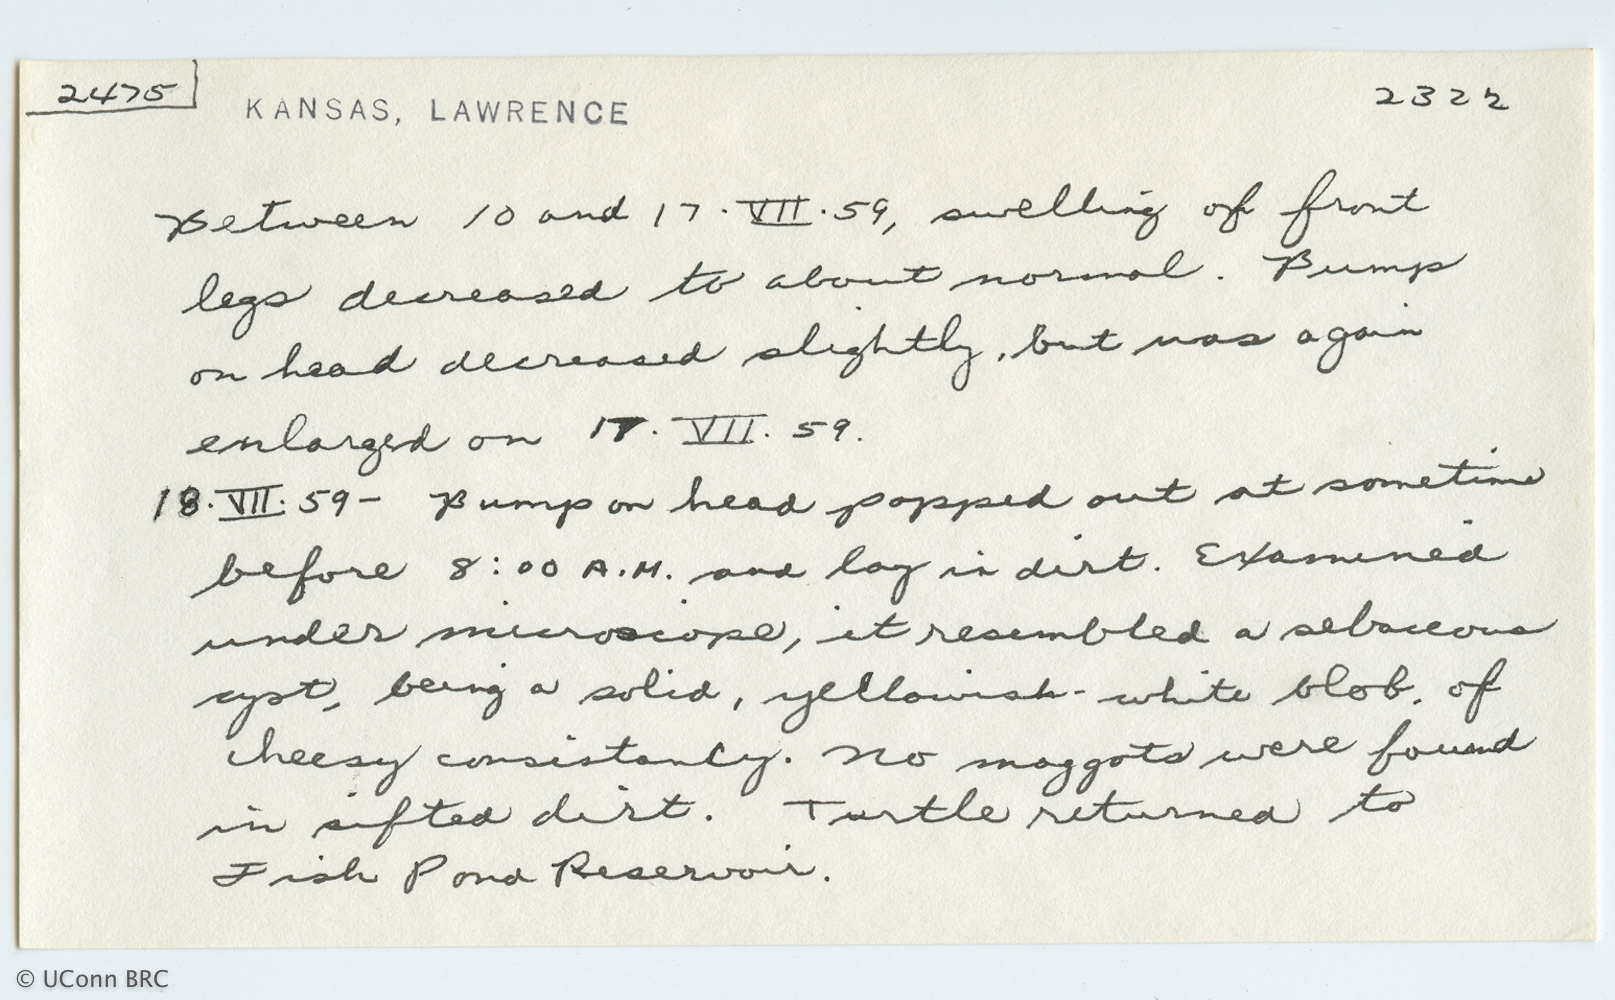 2475 KANSAS, LAWRENCE 2322
Between 10 and 17.VII.59, swelling of front
legs decreased to about normal. Bump
on head decreased slightly, but was again
enlarged on 17.VII.59.
18.VII.59- Bump on head popped out at sometime
before 8:00 A.M. and lay in dirt. Examined
under microscope, it resembled a sebaceous
cyst, being a solid, yellowish-white blob, of
cheesy consistancy. No maggots were found
in sifted dirt. Turtle returned to
Fish Pond Reservoir.
© UConn BRC